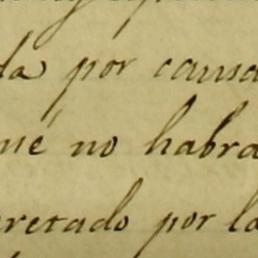 da por causa
mé no habra
retado por la